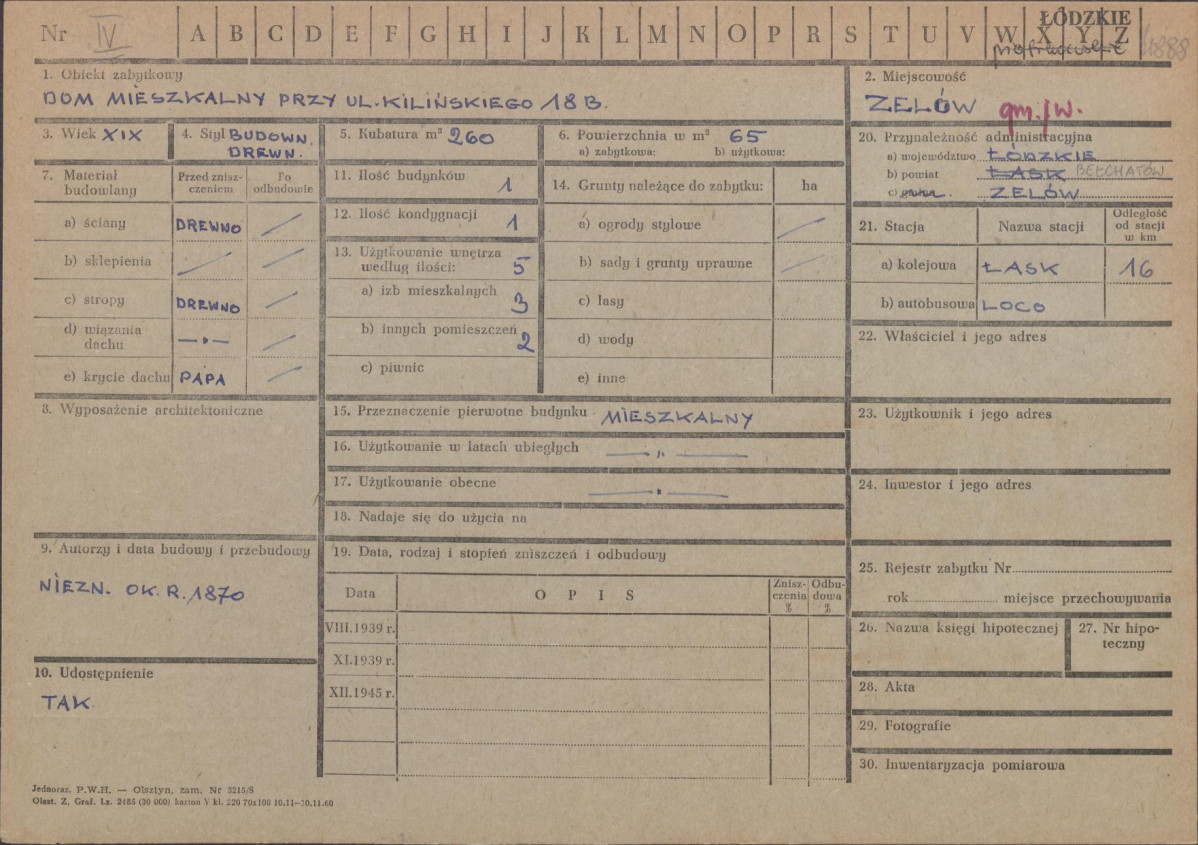 Nr IV A B C D E F G H I J K L M N O P R S T U V W X Y Z
ŁÓDZKIE
piotrkowskie 4888
1. Obiekt zabytkowy
DOM MIESZKALNY PRZY UL. KILIŃSKIEGO 18 B.
2. Miejscowość
ZELÓW gm. j/w.
3. Wiek XIX
4. Styl BUDOWN.
DREWN.
5. Kubatura m³ 260
6. Powierzchnia w m² 65
a) zabytkowa: b) użytkowa:
7. Materiał budowlany
Przed zniszczeniem
Po odbudowie
a) ściany DREWNO /
b) sklepienia / /
c) stropy DREWNO /
d) wiązania dachu —„— /
e) krycie dachu PAPA /
8. Wyposażenie architektoniczne
9. Autorzy i data budowy i przebudowy
NIEZN. OK. R. 1870
10. Udostępnienie
TAK
11. Ilość budynków 1
12. Ilość kondygnacji 1
13. Użytkowanie wnętrza
według ilości: 5
a) izb mieszkalnych 3
b) innych pomieszczeń 2
c) piwnic
14. Grunty należące do zabytku: ha
a) ogrody stylowe /
b) sady i grunty uprawne /
c) lasy
d) wody
e) inne
15. Przeznaczenie pierwotne budynku MIESZKALNY
16. Użytkowanie w latach ubiegłych —„—
17. Użytkowanie obecne —„—
18. Nadaje się do użycia na
19. Data, rodzaj i stopień zniszczeń i odbudowy
Data OPIS Zniszczenia % Odbudowa %
VIII.1939 r.
XI.1939 r.
XII.1945 r.
20. Przynależność administracyjna
a) województwo ŁÓDZKIE
b) powiat ŁASK BEŁCHATÓW
c) gmina ZELÓW
21. Stacja Nazwa stacji Odległość od stacji w km
a) kolejowa ŁASK 16
b) autobusowa LOCO
22. Właściciel i jego adres
23. Użytkownik i jego adres
24. Inwestor i jego adres
25. Rejestr zabytku Nr
rok miejsce przechowywania
26. Nazwa księgi hipotecznej
27. Nr hipoteczny
28. Akta
29. Fotografie
30. Inwentaryzacja pomiarowa
Jednoraz. P.W.H. — Olsztyn, zam. Nr 3215/S
Olszt. Z, Graf. Lz. 2485 (30 000) karton V kl. 220 70x100 10.11—30.11.60